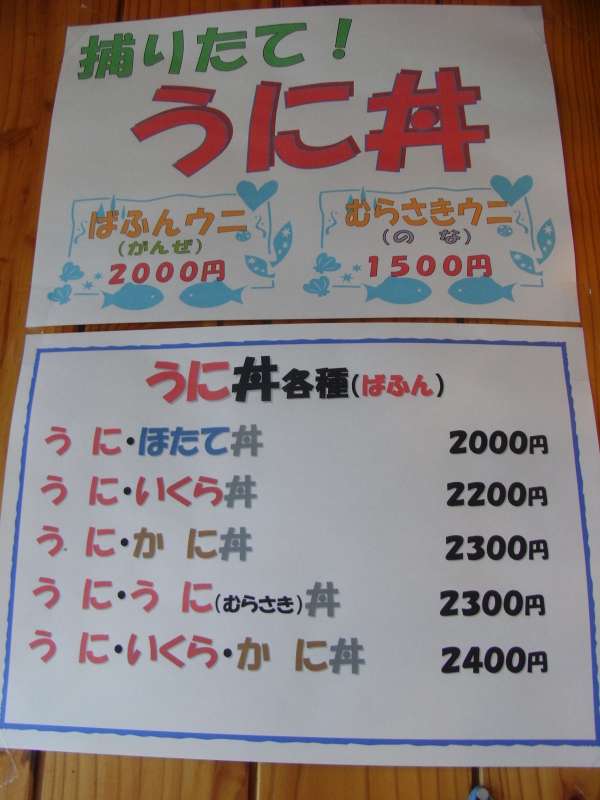 捕りたて！
うに丼
ばふんウニ
(がんぜ)
2000円
むらさきウニ
(のな)
1500円
うに丼各種(ばふん)
うに・ほたて丼 2000円
うに・いくら丼 2200円
うに・かに丼 2300円
うに・うに(むらさき)丼 2300円
うに・いくら・かに丼 2400円